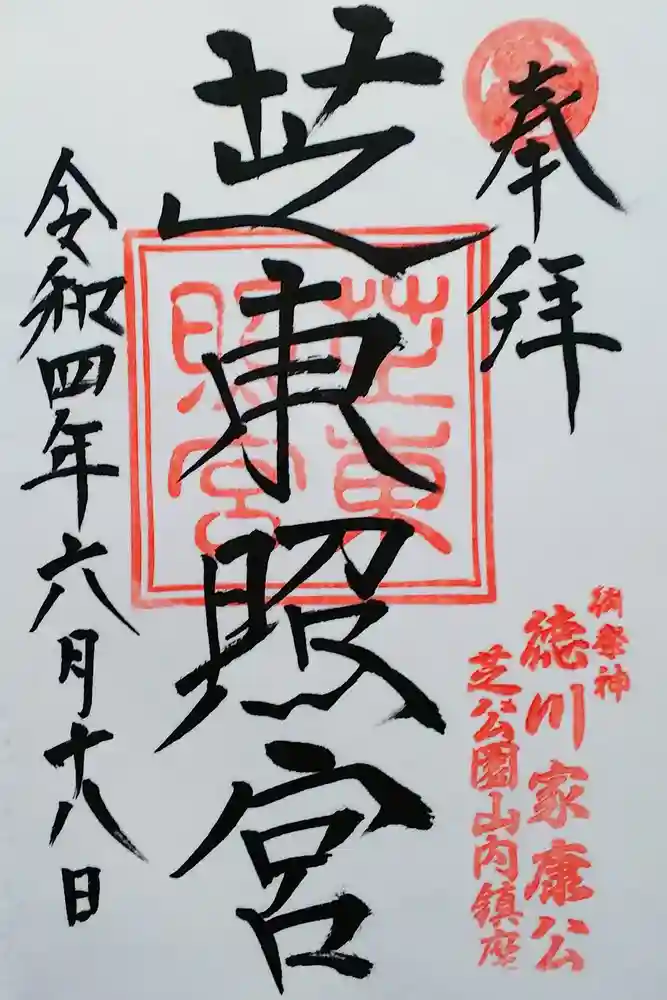 奉拝
御祭神
徳川家康公
芝公園山内鎮座
芝東照宮
芝東
照宮
令和四年六月十八日